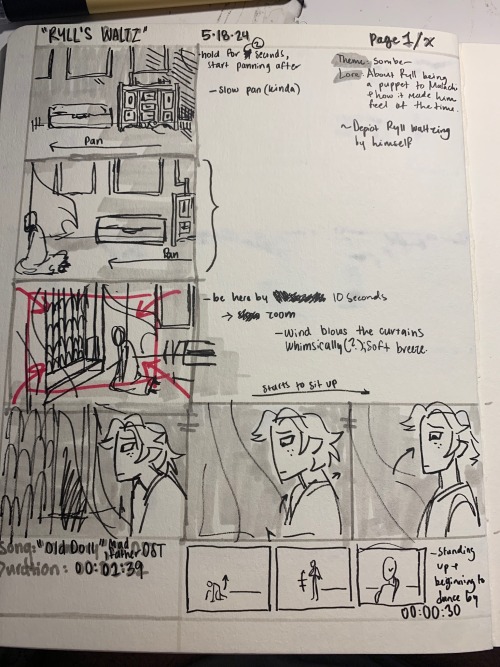 "RYLL'S WALTZ"
5·18·24
Page 1/x
-hold for 2 seconds,
start panning after
-slow pan (kinda)
Theme: Somber
Lore: About Ryll being
a puppet to Malachi
& how it made him
feel at the time.
~ Depict Ryll waltzing
by himself
Pan
Pan
-be here by 10 seconds
→ zoom
-Wind blows the curtains
whimsically(?), soft breeze.
Starts to sit up
Song: "Old Doll" Mad Father OST
Duration: 00:02:39
-Standing
up +
beginning to
dance by
00:00:30